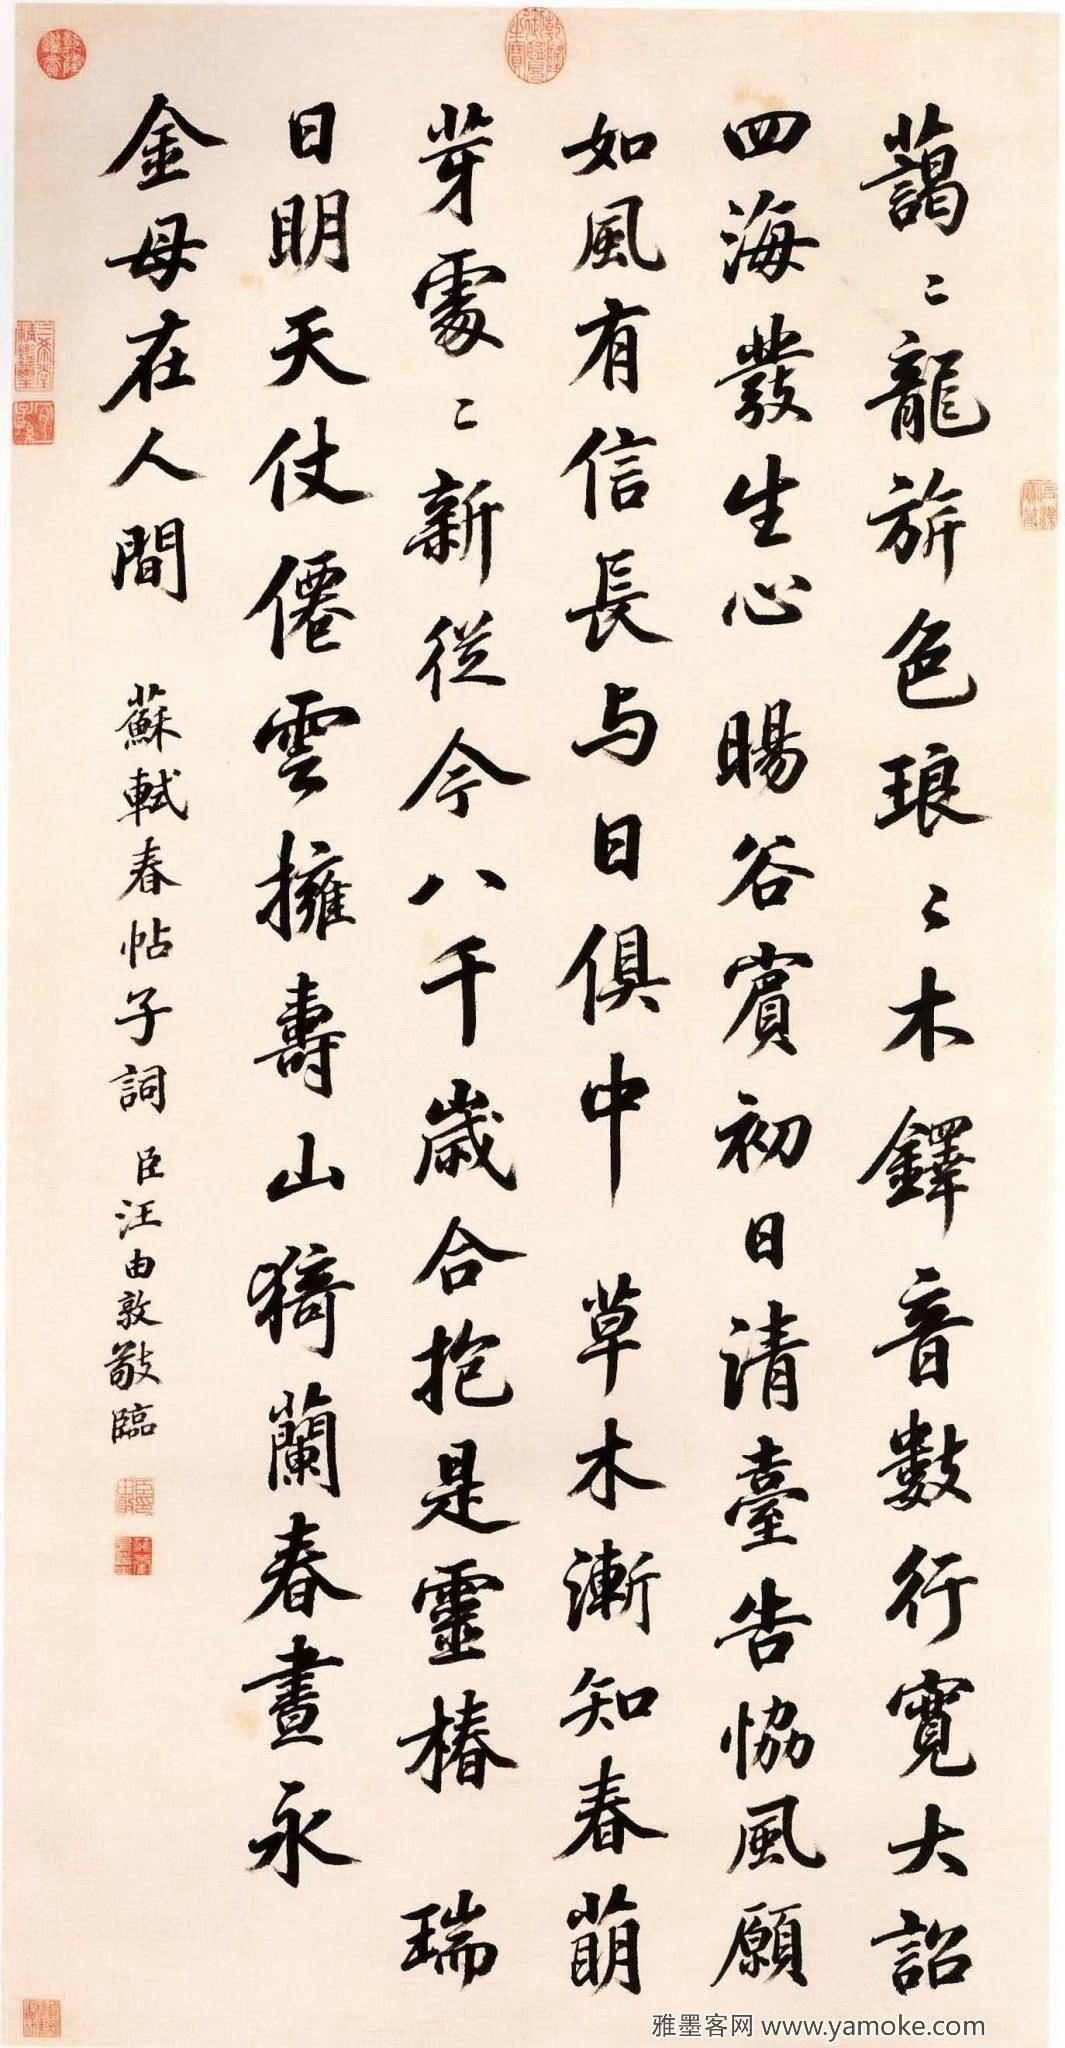 藹〻龍旂色琅〻木鐸音數行寬大詔
四海發生心 暘谷賓初日清臺告協風願
如風有信長与日俱中 草木漸知春萌
芽處〻新從今八千歲合抱是靈椿 瑞
日明天仗僊雲擁壽山猗蘭春晝永
金母在人間 蘇軾春帖子詞 臣汪由敦敬臨
乾隆御覽之寶
乾隆鑑賞
三希堂精鑑璽
宜子孫
雅墨客网 www.yamoke.com